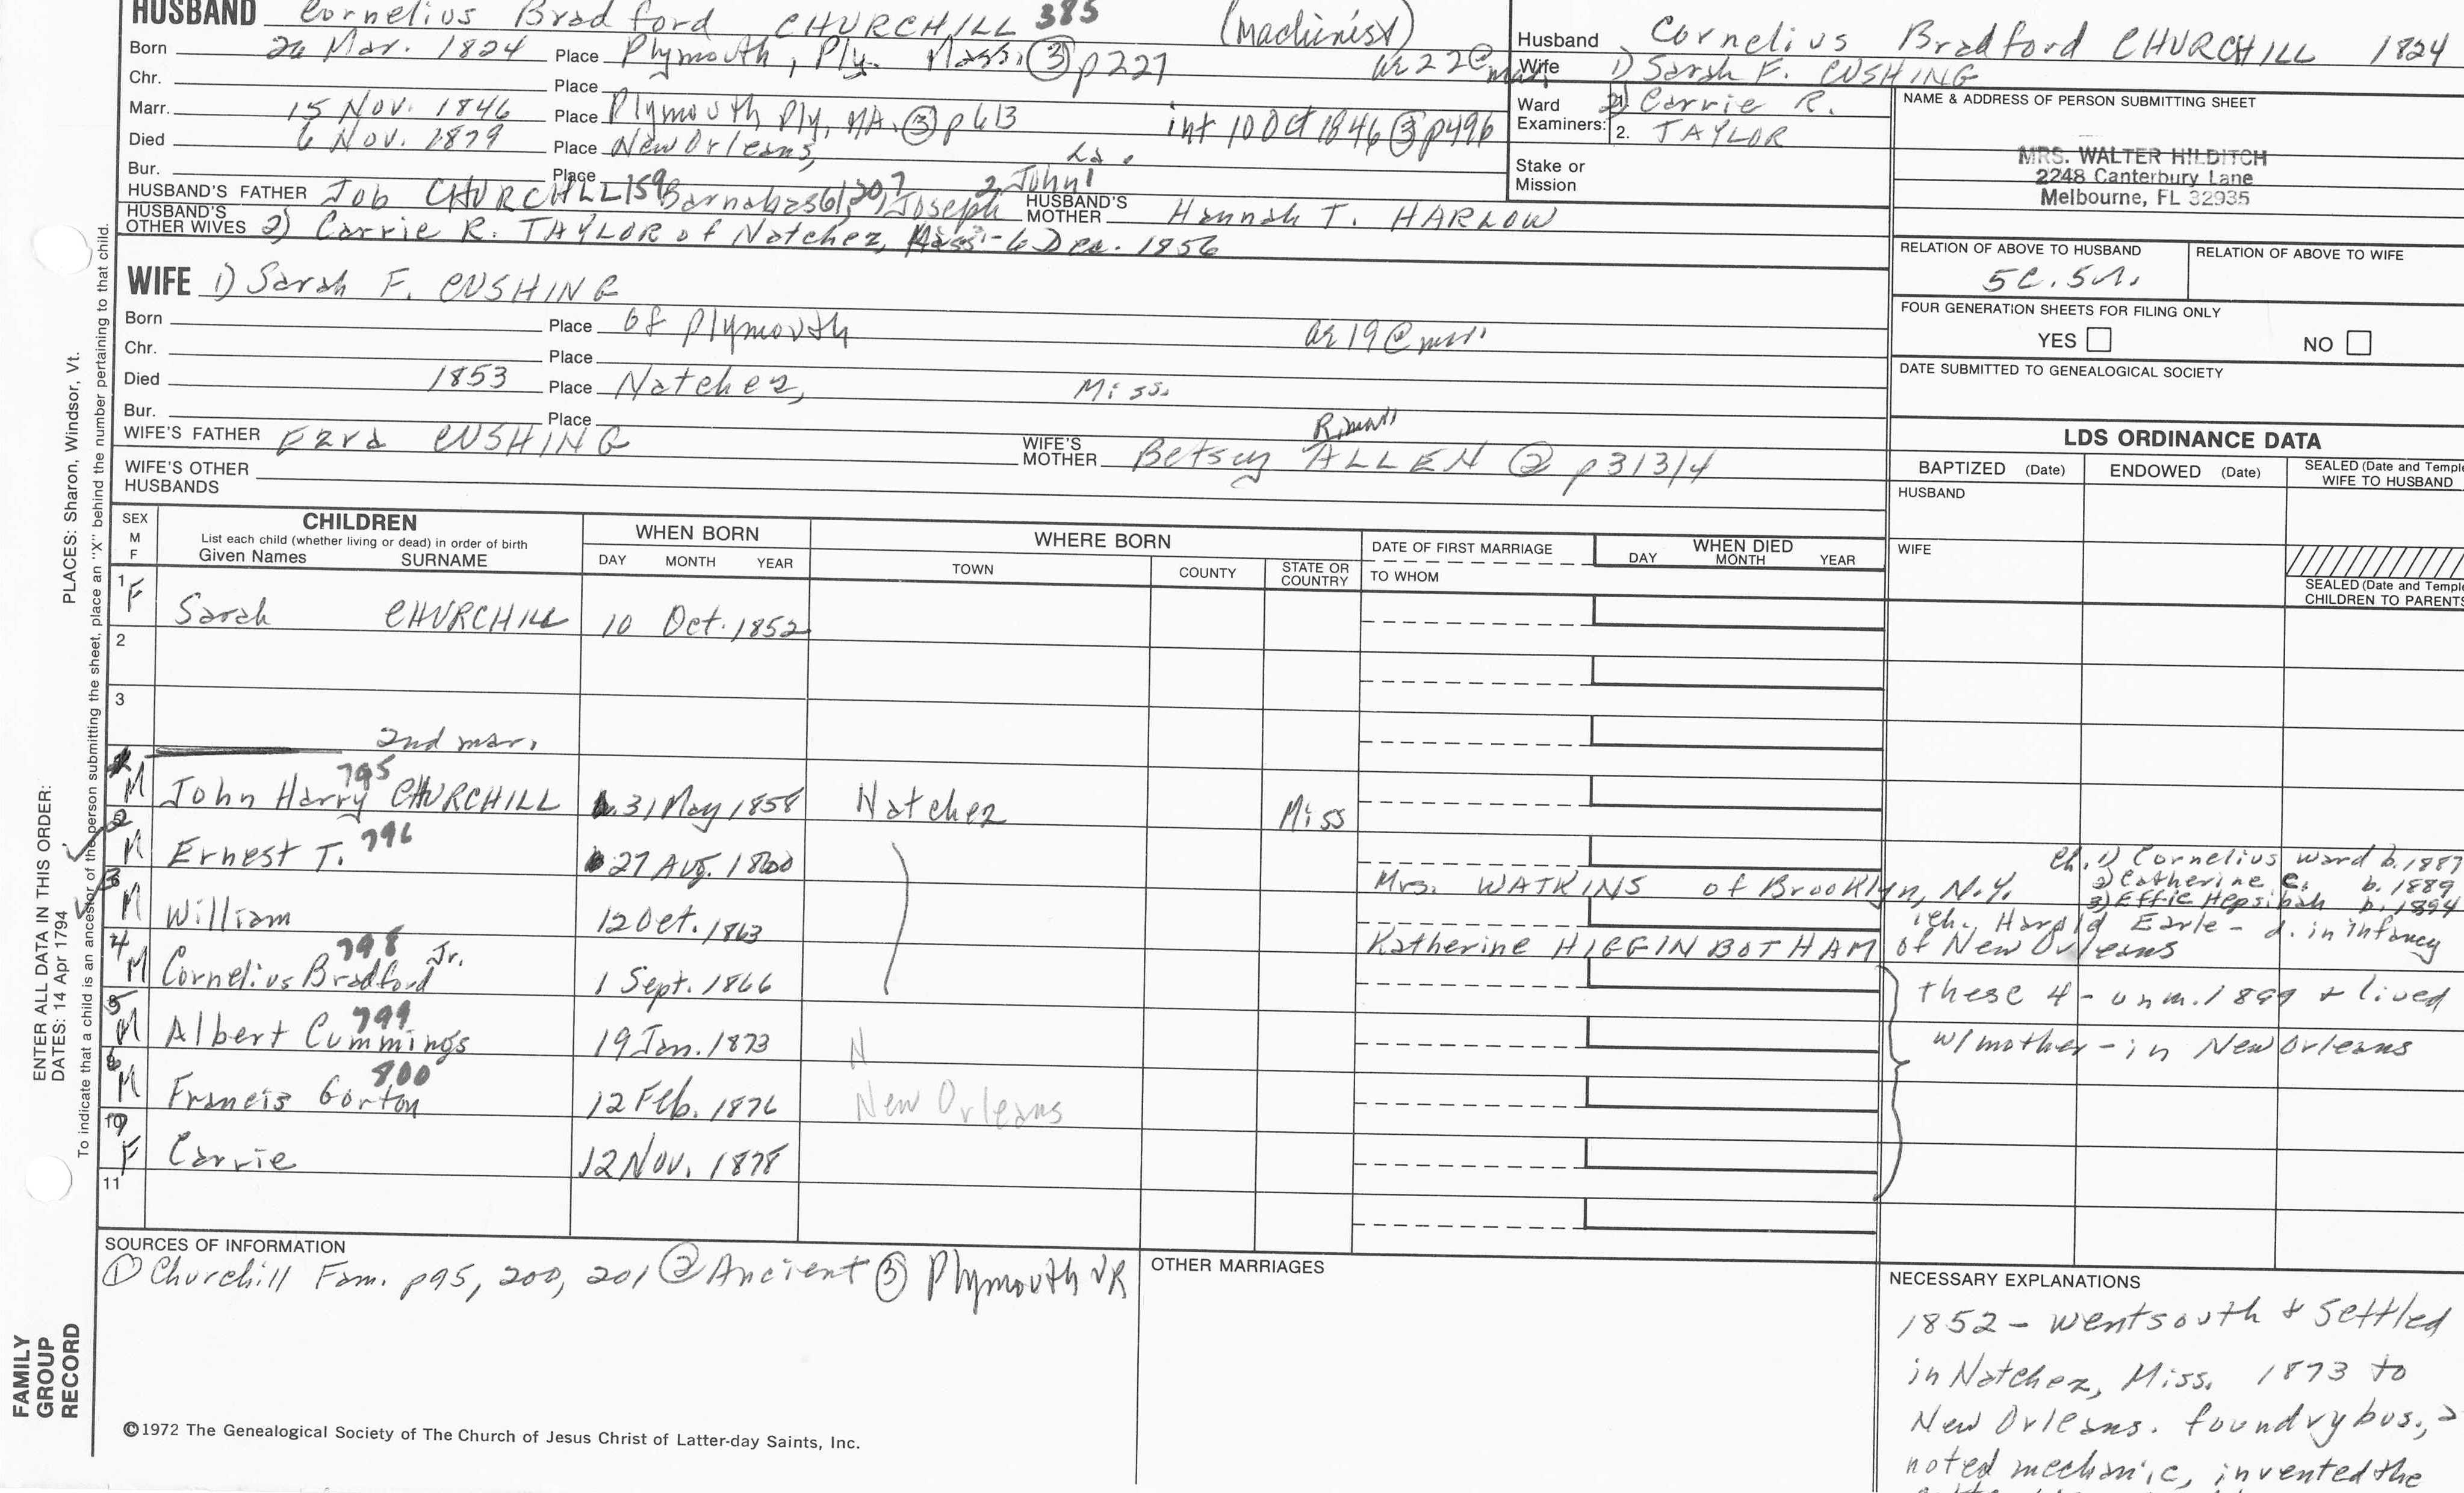 HUSBAND Cornelius Bradford CHURCHILL 385 (Machinist)
Born 26 Mar. 1824 Place Plymouth, Ply. Mass. ③ p227 ae 22 @ mar.
Chr. Place
Marr. 15 Nov. 1846 Place Plymouth Ply, MA. ③ p613 int 10 Oct 1846 ③ p496
Died 6 Nov. 1879 Place New Orleans, La.
Bur. Place
HUSBAND'S FATHER Job CHURCHILL 159 Barnabas 61, 20, Joseph 7 2 John 1 HUSBAND'S MOTHER Hannah T. HARLOW
HUSBAND'S OTHER WIVES 2) Carrie R. TAYLOR of Natchez, Miss - 6 Dec. 1856
Husband Cornelius Bradford CHURCHILL 1824
Wife 1) Sarah F. CUSHING
Ward Examiners: 2) Carrie R.
2. TAYLOR
Stake or Mission
NAME & ADDRESS OF PERSON SUBMITTING SHEET
MRS. WALTER HILDITCH
2248 Canterbury Lane
Melbourne, FL 32935
RELATION OF ABOVE TO HUSBAND
5c. 5r.
RELATION OF ABOVE TO WIFE
FOUR GENERATION SHEETS FOR FILING ONLY
YES NO
DATE SUBMITTED TO GENEALOGICAL SOCIETY
WIFE 1) Sarah F. CUSHING
Born Place of Plymouth ae 19 @ mar.
Chr. Place
Died 1853 Place Natchez, Miss.
Bur. Place
WIFE'S FATHER Ezra CUSHING WIFE'S MOTHER Betsey ALLEN ② p313/4
WIFE'S OTHER HUSBANDS
LDS ORDINANCE DATA
BAPTIZED (Date) ENDOWED (Date) SEALED (Date and Temple WIFE TO HUSBAND
HUSBAND
WIFE
SEALED (Date and Temple CHILDREN TO PARENTS
SEX M F
CHILDREN
List each child (whether living or dead) in order of birth
Given Names SURNAME
WHEN BORN
DAY MONTH YEAR
WHERE BORN
TOWN COUNTY STATE OR COUNTRY
DATE OF FIRST MARRIAGE
TO WHOM
WHEN DIED
DAY MONTH YEAR
1 F Sarah CHURCHILL 10 Oct. 1852
2
3
2nd mar.
M John Harry 795 CHURCHILL 31 May 1858 Natchez Miss
2 M Ernest T. 796 27 Aug. 1860 Mrs. WATKINS of Brooklyn, N.Y.
ch. 1) Cornelius Ward b. 1887
2) Catherine C. b. 1889
3) Effie Hepsibah b. 1894
3 M William 12 Oct. 1863 Katherine HIGGINBOTHAM of New Orleans
1 ch. Harold Earle - d. in infancy
4 M Cornelius Bradford 798 Jr. 1 Sept. 1866
5 M Albert Cummings 799 19 Jan. 1873 N
6 M Francis Gorton 800 12 Feb. 1876 New Orleans
F Carrie 12 Nov. 1878
these 4 - unm. 1899 & lived
w/mother - in New Orleans
11
SOURCES OF INFORMATION
① Churchill Fam. p95, 200, 201 ② Ancient ③ Plymouth VR
OTHER MARRIAGES
NECESSARY EXPLANATIONS
1852 - went south & settled
in Natchez, Miss. 1873 to
New Orleans. foundry bus.,
noted mechanic, invented the
©1972 The Genealogical Society of The Church of Jesus Christ of Latter-day Saints, Inc.
FAMILY
GROUP
RECORD
ENTER ALL DATA IN THIS ORDER:
DATES: 14 Apr 1794
PLACES: Sharon, Windsor, Vt.
To indicate that a child is an ancestor of the person submitting the sheet, place an "X" behind the number pertaining to that child.